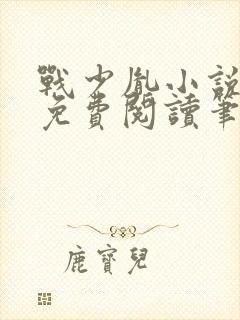 戰少胤小說
免費閱讀筆
鹿寶兒